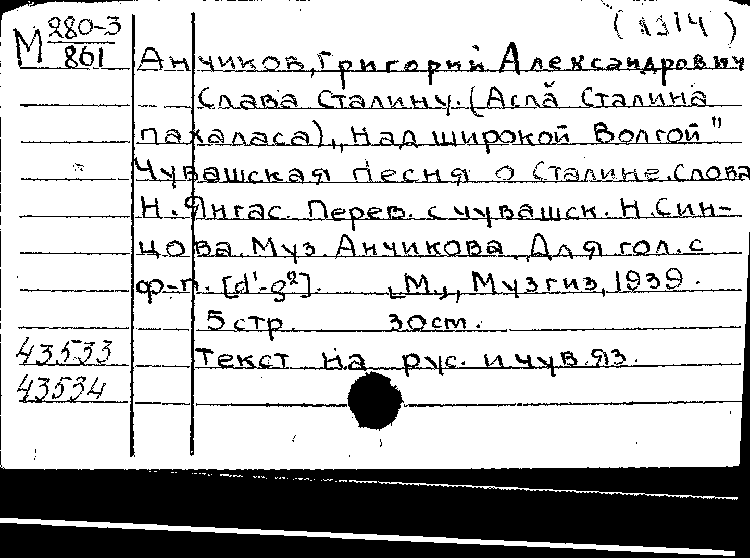 (1314)
М 280-3
861
Анчиков, Григорий Александрович
Слава Сталину. (Аслă Сталина
пахаласа) „Над широкой Волгой"
Чувашская песня о Сталине. Слова
Н. Янгас. Перев. с чувашск. Н. Син-
цова. Муз. Анчикова. Для гол. с
ф-п. [d'-g²]. [М.], Музгиз, 1939.
5 стр. 30 ст.
43533 Текст на рус. и чув. яз.
43534